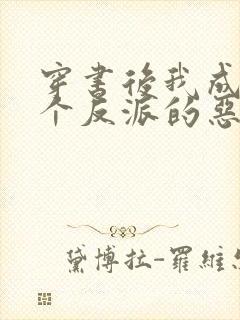 穿書後我成
个反派的惡
黛博拉-羅維